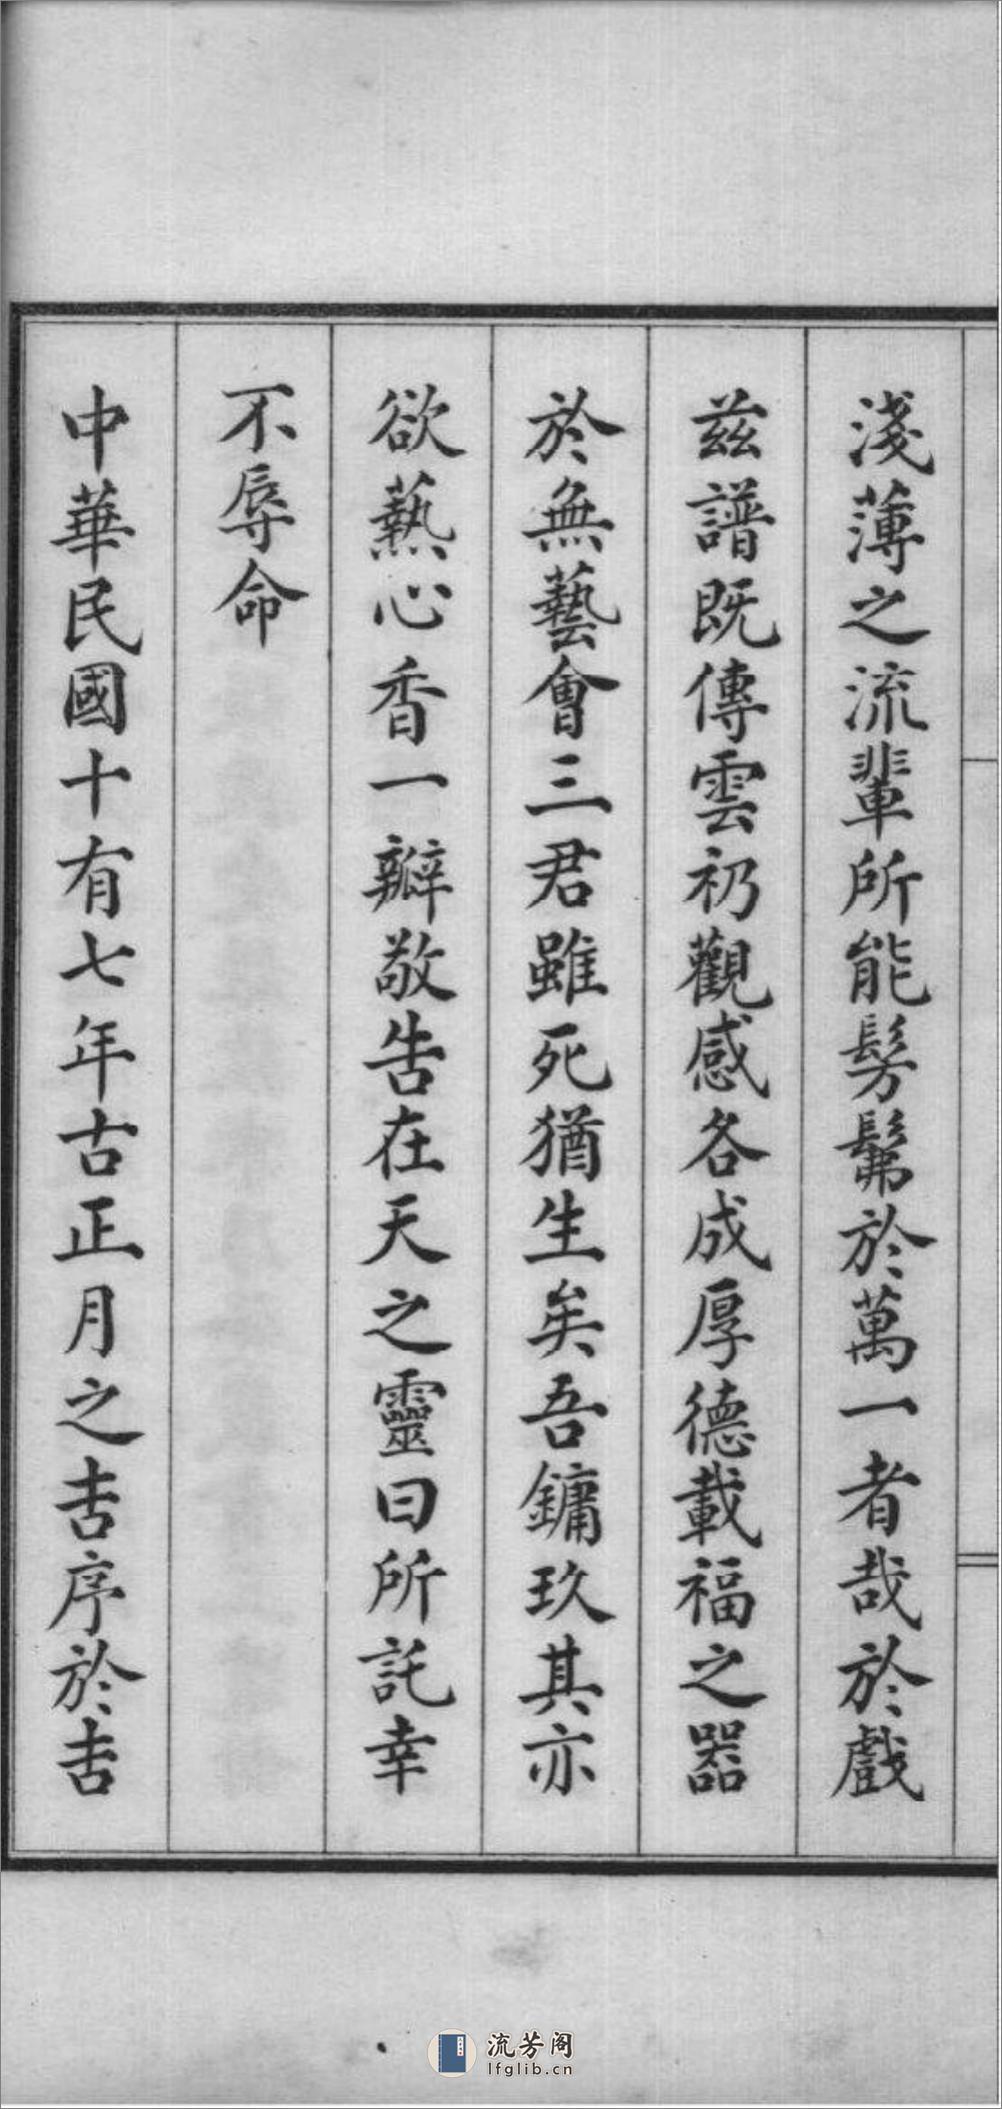 淺薄之流輩所能髣髴於萬一者哉於戲
茲譜既傳雲礽觀感各成厚德載福之器
於無藝會三君雖死猶生矣吾鏞玖其亦
欲爇心香一瓣敬告在天之靈曰所託幸
不辱命
中華民國十有七年古正月之吉序於吉
流芳阁
lfglib.cn